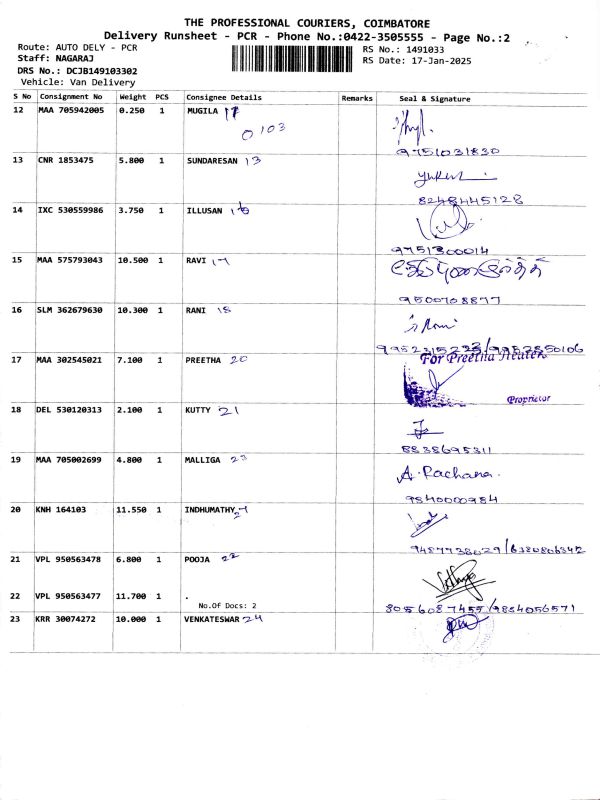 THE PROFESSIONAL COURIERS, COIMBATORE
Delivery Runsheet - PCR - Phone No.:0422-3505555 - Page No.:2
Route: AUTO DELY - PCR RS No.: 1491033
Staff: NAGARAJ RS Date: 17-Jan-2025
DRS No.: DCJB149103302
Vehicle: Van Delivery
S No Consignment No Weight PCS Consignee Details Remarks Seal & Signature
12 MAA 705942005 0.250 1 MUGILA
0103
9751031830
13 CNR 1853475 5.800 1 SUNDARESAN 13
8248445128
14 IXC 530559986 3.750 1 ILLUSAN
9751300014
15 MAA 575793043 10.500 1 RAVI 17
9500708877
16 SLM 362679630 10.300 1 RANI 18
Rani
9952315223/9952850106
17 MAA 302545021 7.100 1 PREETHA 20
For Preetha Heater
Proprietor
18 DEL 530120313 2.100 1 KUTTY 21
8838695311
19 MAA 705002699 4.800 1 MALLIGA 23
A. Rachana
9840000984
20 KNH 164103 11.550 1 INDHUMATHY
9487738029/6380806342
21 VPL 950563478 6.800 1 POOJA 22
22 VPL 950563477 11.700 1 .
No.Of Docs: 2
8056087455/9884056571
23 KRR 30074272 10.000 1 VENKATESWAR 24